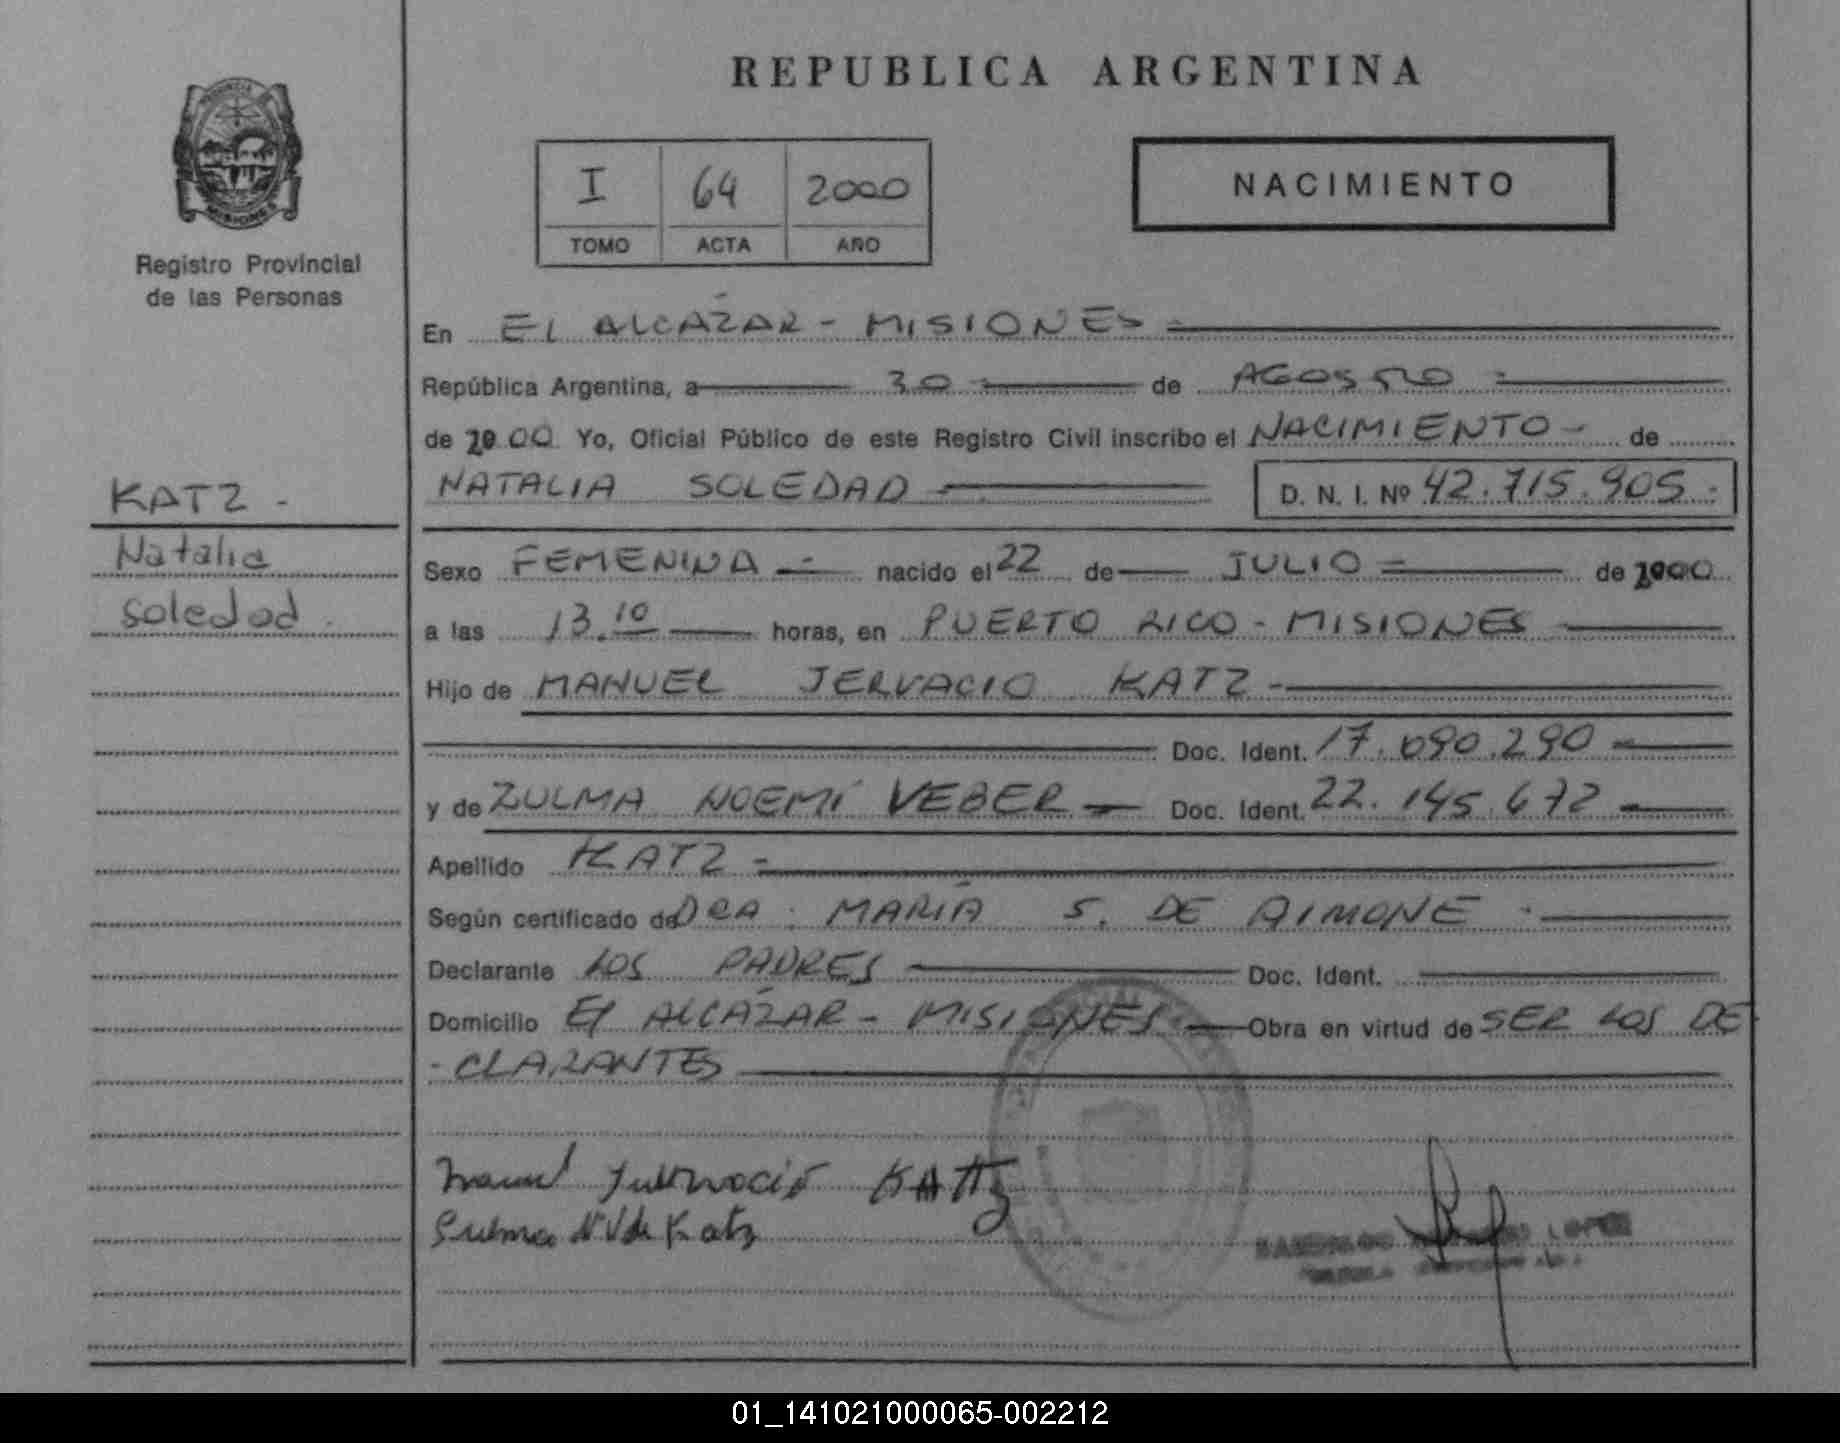 REPUBLICA ARGENTINA
PROVINCIA
MISIONES
Registro Provincial
de las Personas
I 64 2000
TOMO ACTA AÑO
NACIMIENTO
KATZ -
Natalia
Soledad
En EL ALCÁZAR - MISIONES -
República Argentina, a 30 de AGOSTO -
de 2000 Yo, Oficial Público de este Registro Civil inscribo el NACIMIENTO - de
NATALIA SOLEDAD - D. N. I. Nº 42.715.905.-
Sexo FEMENINA - nacido el 22 de JULIO - de 2000
a las 13.10 horas, en PUERTO RICO - MISIONES
Hijo de MANUEL JERVACIO KATZ -
Doc. Ident. 17.690.290 -
y de ZULMA NOEMÍ VEBER - Doc. Ident. 22.145.672 -
Apellido KATZ -
Según certificado de DRA. MARÍA S. DE AIMONE -
Declarante LOS PADRES Doc. Ident.
Domicilio El ALCÁZAR - MISIONES - Obra en virtud de SER LOS DE
- CLARANTES
KATTZ
N V de Katz
LOPEZ
01_141021000065-002212